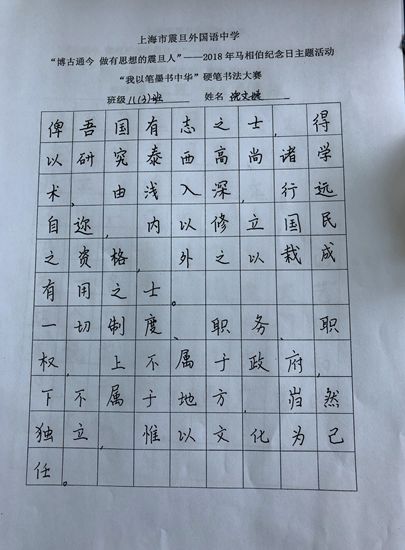 上海市震旦外国语中学
“博古通今 做有思想的震旦人”——2018年马相伯纪念日主题活动
“我以笔墨书中华”硬笔书法大赛
班级 八(3)班 姓名 沈文
俾吾国有志之士,得
以研究泰西高尚诸学
术,由浅入深,行远
自迩,内以修立国民
之资格,外之以栽成
有用之士。
一切制度、职务、职
权,上不属于政府,
下不属于地方,岿然
独立,惟以文化为己
任。